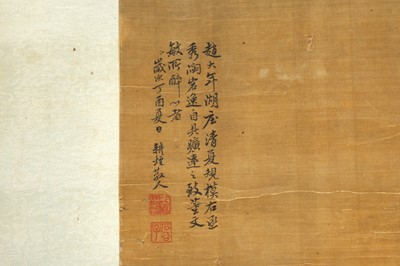 趙大年湖庄清夏規模右丞
秀潤岩逸自具殊遠之致董文
敏所醉心者
歲次丁酉夏日 耕煙散人